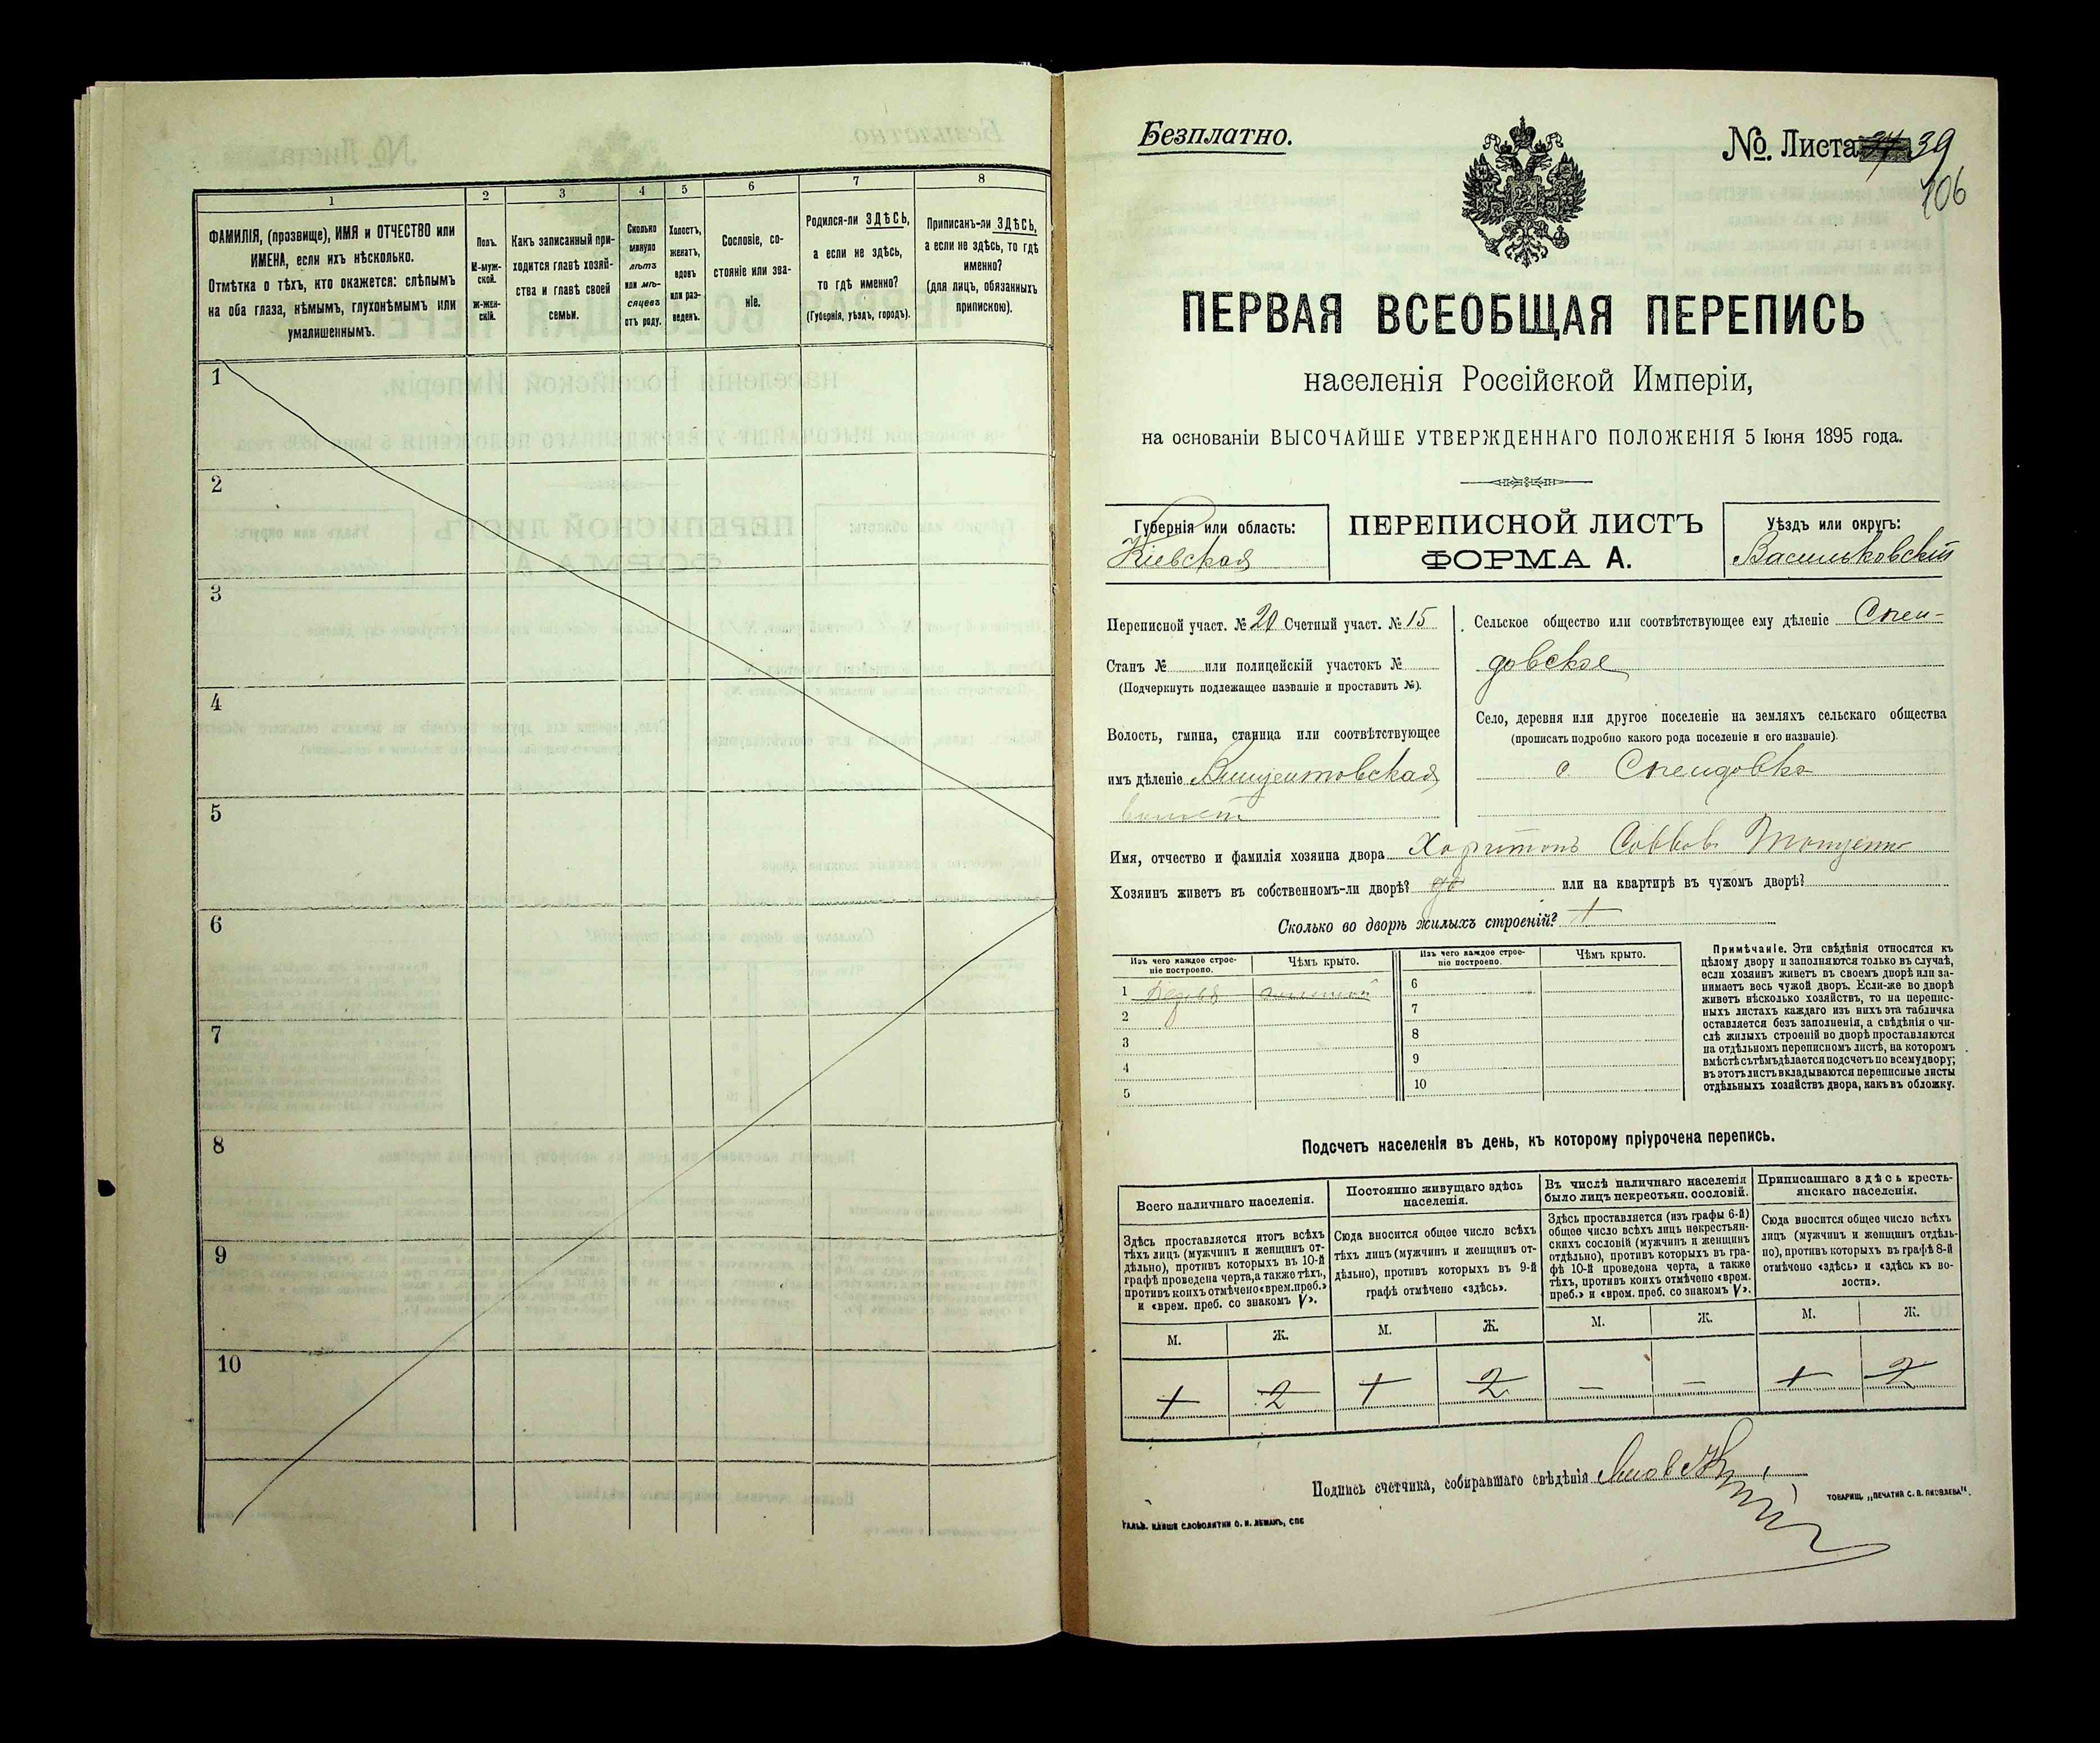 1
2
3
4
5
6
7
8
ФАМИЛІЯ, (прозвище), ИМЯ и ОТЧЕСТВО или
ИМЕНА, если ихъ нѣсколько.
Отмѣтка о тѣхъ, кто окажется: слѣпымъ
на оба глаза, нѣмымъ, глухонѣмымъ или
умалишеннымъ.
Полъ.
М-муж-
ской.
Ж-жен-
скій.
Какъ записанный при-
ходится главѣ хозяй-
ства и главѣ своей
семьи.
Сколько
минуло
лѣтъ
или мѣ-
сяцевъ
отъ роду.
Холостъ,
женатъ,
вдовъ
или раз-
веденъ.
Сословіе, со-
стояніе или зва-
ніе.
Родился-ли ЗДѢСЬ,
а если не здѣсь,
то гдѣ именно?
(Губернія, уѣздъ, городъ).
Приписанъ-ли ЗДѢСЬ,
а если не здѣсь, то гдѣ
именно?
(для лицъ, обязанныхъ
припискою).
1
2
3
4
5
6
7
8
9
10
Безплатно.
№. Листа 39
106
ПЕРВАЯ ВСЕОБЩАЯ ПЕРЕПИСЬ
населенія Россійской Имперіи,
на основаніи ВЫСОЧАЙШЕ УТВЕРЖДЕННАГО ПОЛОЖЕНІЯ 5 Іюня 1895 года.
Губернія или область:
Кіевская
ПЕРЕПИСНОЙ ЛИСТЪ
ФОРМА А.
Уѣздъ или округъ:
Васильковскій
Переписной участ. № 20 Счетный участ. № 15
Станъ № или полицейскій участокъ №
(Подчеркнуть подлежащее названіе и проставить №).
Волость, гмина, станица или соотвѣтствующее
имъ дѣленіе Винцентовская
Сельское общество или соотвѣтствующее ему дѣленіе Спен-
довское
Село, деревня или другое поселеніе на земляхъ сельскаго общества
(прописать подробно какого рода поселеніе и его названіе).
с. Спендовка
Имя, отчество и фамилія хозяина двора Харитонъ Саввовъ
Хозяинъ живетъ въ собственномъ-ли дворѣ? да или на квартирѣ въ чужомъ дворѣ?
Сколько во дворѣ жилыхъ строеній? 1
Изъ чего каждое строе-
ніе построено.
Чѣмъ крыто.
Изъ чего каждое строе-
ніе построено.
Чѣмъ крыто.
1
2
3
4
5
6
7
8
9
10
Примѣчаніе. Эти свѣдѣнія относятся къ
цѣлому двору и заполняются только въ случаѣ,
если хозяинъ живетъ въ своемъ дворѣ или за-
нимаетъ весь чужой дворъ. Если-же во дворѣ
живетъ нѣсколько хозяйствъ, то на перепис-
ныхъ листахъ каждаго изъ нихъ эта табличка
оставляется безъ заполненія, а свѣдѣнія о чи-
слѣ жилыхъ строеній во дворѣ проставляются
на отдѣльномъ переписномъ листѣ, на которомъ
вмѣстѣ съ тѣмъ дѣлается подсчетъ по всему двору;
въ этотъ листъ вкладываются переписные листы
отдѣльныхъ хозяйствъ двора, какъ въ обложку.
Подсчетъ населенія въ день, къ которому пріурочена перепись.
Всего наличнаго населенія.
Постоянно живущаго здѣсь
населенія.
Въ числѣ наличнаго населенія
было лицъ некрестьян. сословій.
Приписаннаго здѣсь кресть-
янскаго населенія.
Здѣсь проставляется итогъ всѣхъ
тѣхъ лицъ (мужчинъ и женщинъ от-
дѣльно), противъ которыхъ въ 10-й
графѣ проведена черта, а также тѣхъ,
противъ коихъ отмѣчено «врем. преб.»
и «врем. преб. со знакомъ V».
Сюда вносится общее число всѣхъ
тѣхъ лицъ (мужчинъ и женщинъ от-
дѣльно), противъ которыхъ въ 9-й
графѣ отмѣчено «здѣсь».
Здѣсь проставляется (изъ графы 6-й)
общее число всѣхъ лицъ некрестьян-
скихъ сословій (мужчинъ и женщинъ
отдѣльно), противъ которыхъ въ гра-
фѣ 10-й проведена черта, а также
тѣхъ, противъ коихъ отмѣчено «врем.
преб.» и «врем. преб. со знакомъ V».
Сюда вносится общее число всѣхъ
лицъ (мужчинъ и женщинъ отдѣль-
но), противъ которыхъ въ графѣ 8-й
отмѣчено «здѣсь» и «здѣсь къ во-
лости».
М. Ж. М. Ж. М. Ж. М. Ж.
1 2 1 2 — — 1 2
Подпись счетчика, собиравшаго свѣдѣнія
ТОВАРИЩ. „ПЕЧАТНЯ С. П. ЯКОВЛЕВА“.
ГАЛЬВ. КЛИШЕ СЛОВОЛИТНИ О. И. ЛЕМАНЪ, СПБ